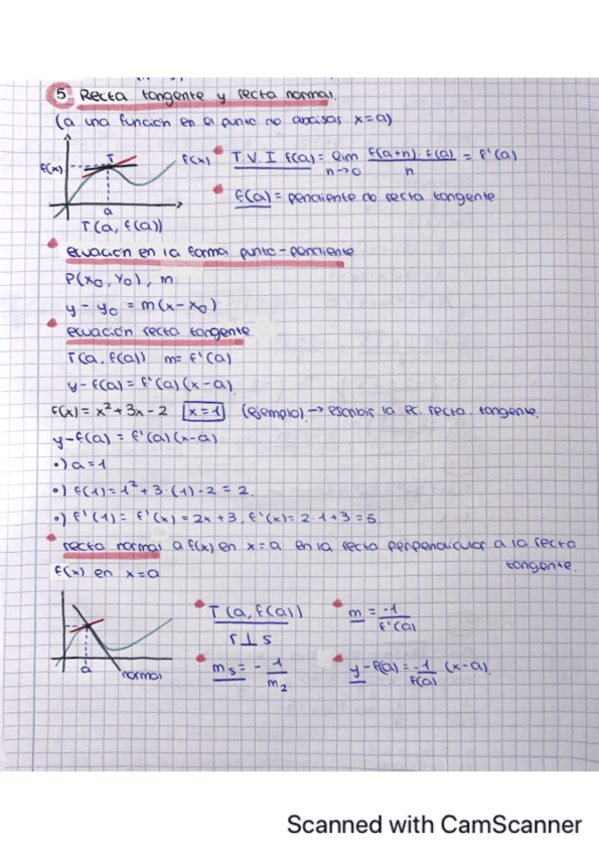 5 Recta tangente y recta normal.
(a una función en el punto no abcisas x=a)
f(x) T f(x)
a
T(a, f(a))
• T.V.I f(a) = lim n→0 f(a+n)·f(a) / n = f'(a)
• f(a) = pendiente de recta tangente
• ecuación en la forma punto-pendiente
P(x₀, y₀), m
y - y₀ = m(x-x₀)
• ecuación recta tangente
T(a, f(a)) m= f'(a)
y-f(a) = f'(a)(x-a)
f(x) = x²+3x-2 x=1 (ejemplo) → escribir la ec. recta tangente.
y-f(a) = f'(a)(x-a)
•) a=1
•) f(1)=1²+3·(1)-2 = 2.
•) f'(1) = f'(x) = 2x+3, f'(x)= 2·1+3=5.
• recta normal a f(x) en x=a en la recta perpendicular a la recta
tangente.
f(x) en x=a
a normal
• T(a, f(a))
r⊥s
• m = -1 / f'(a)
• ms = - 1 / m2
• y-f(a) = -1 / f(a) (x-a).
Scanned with CamScanner